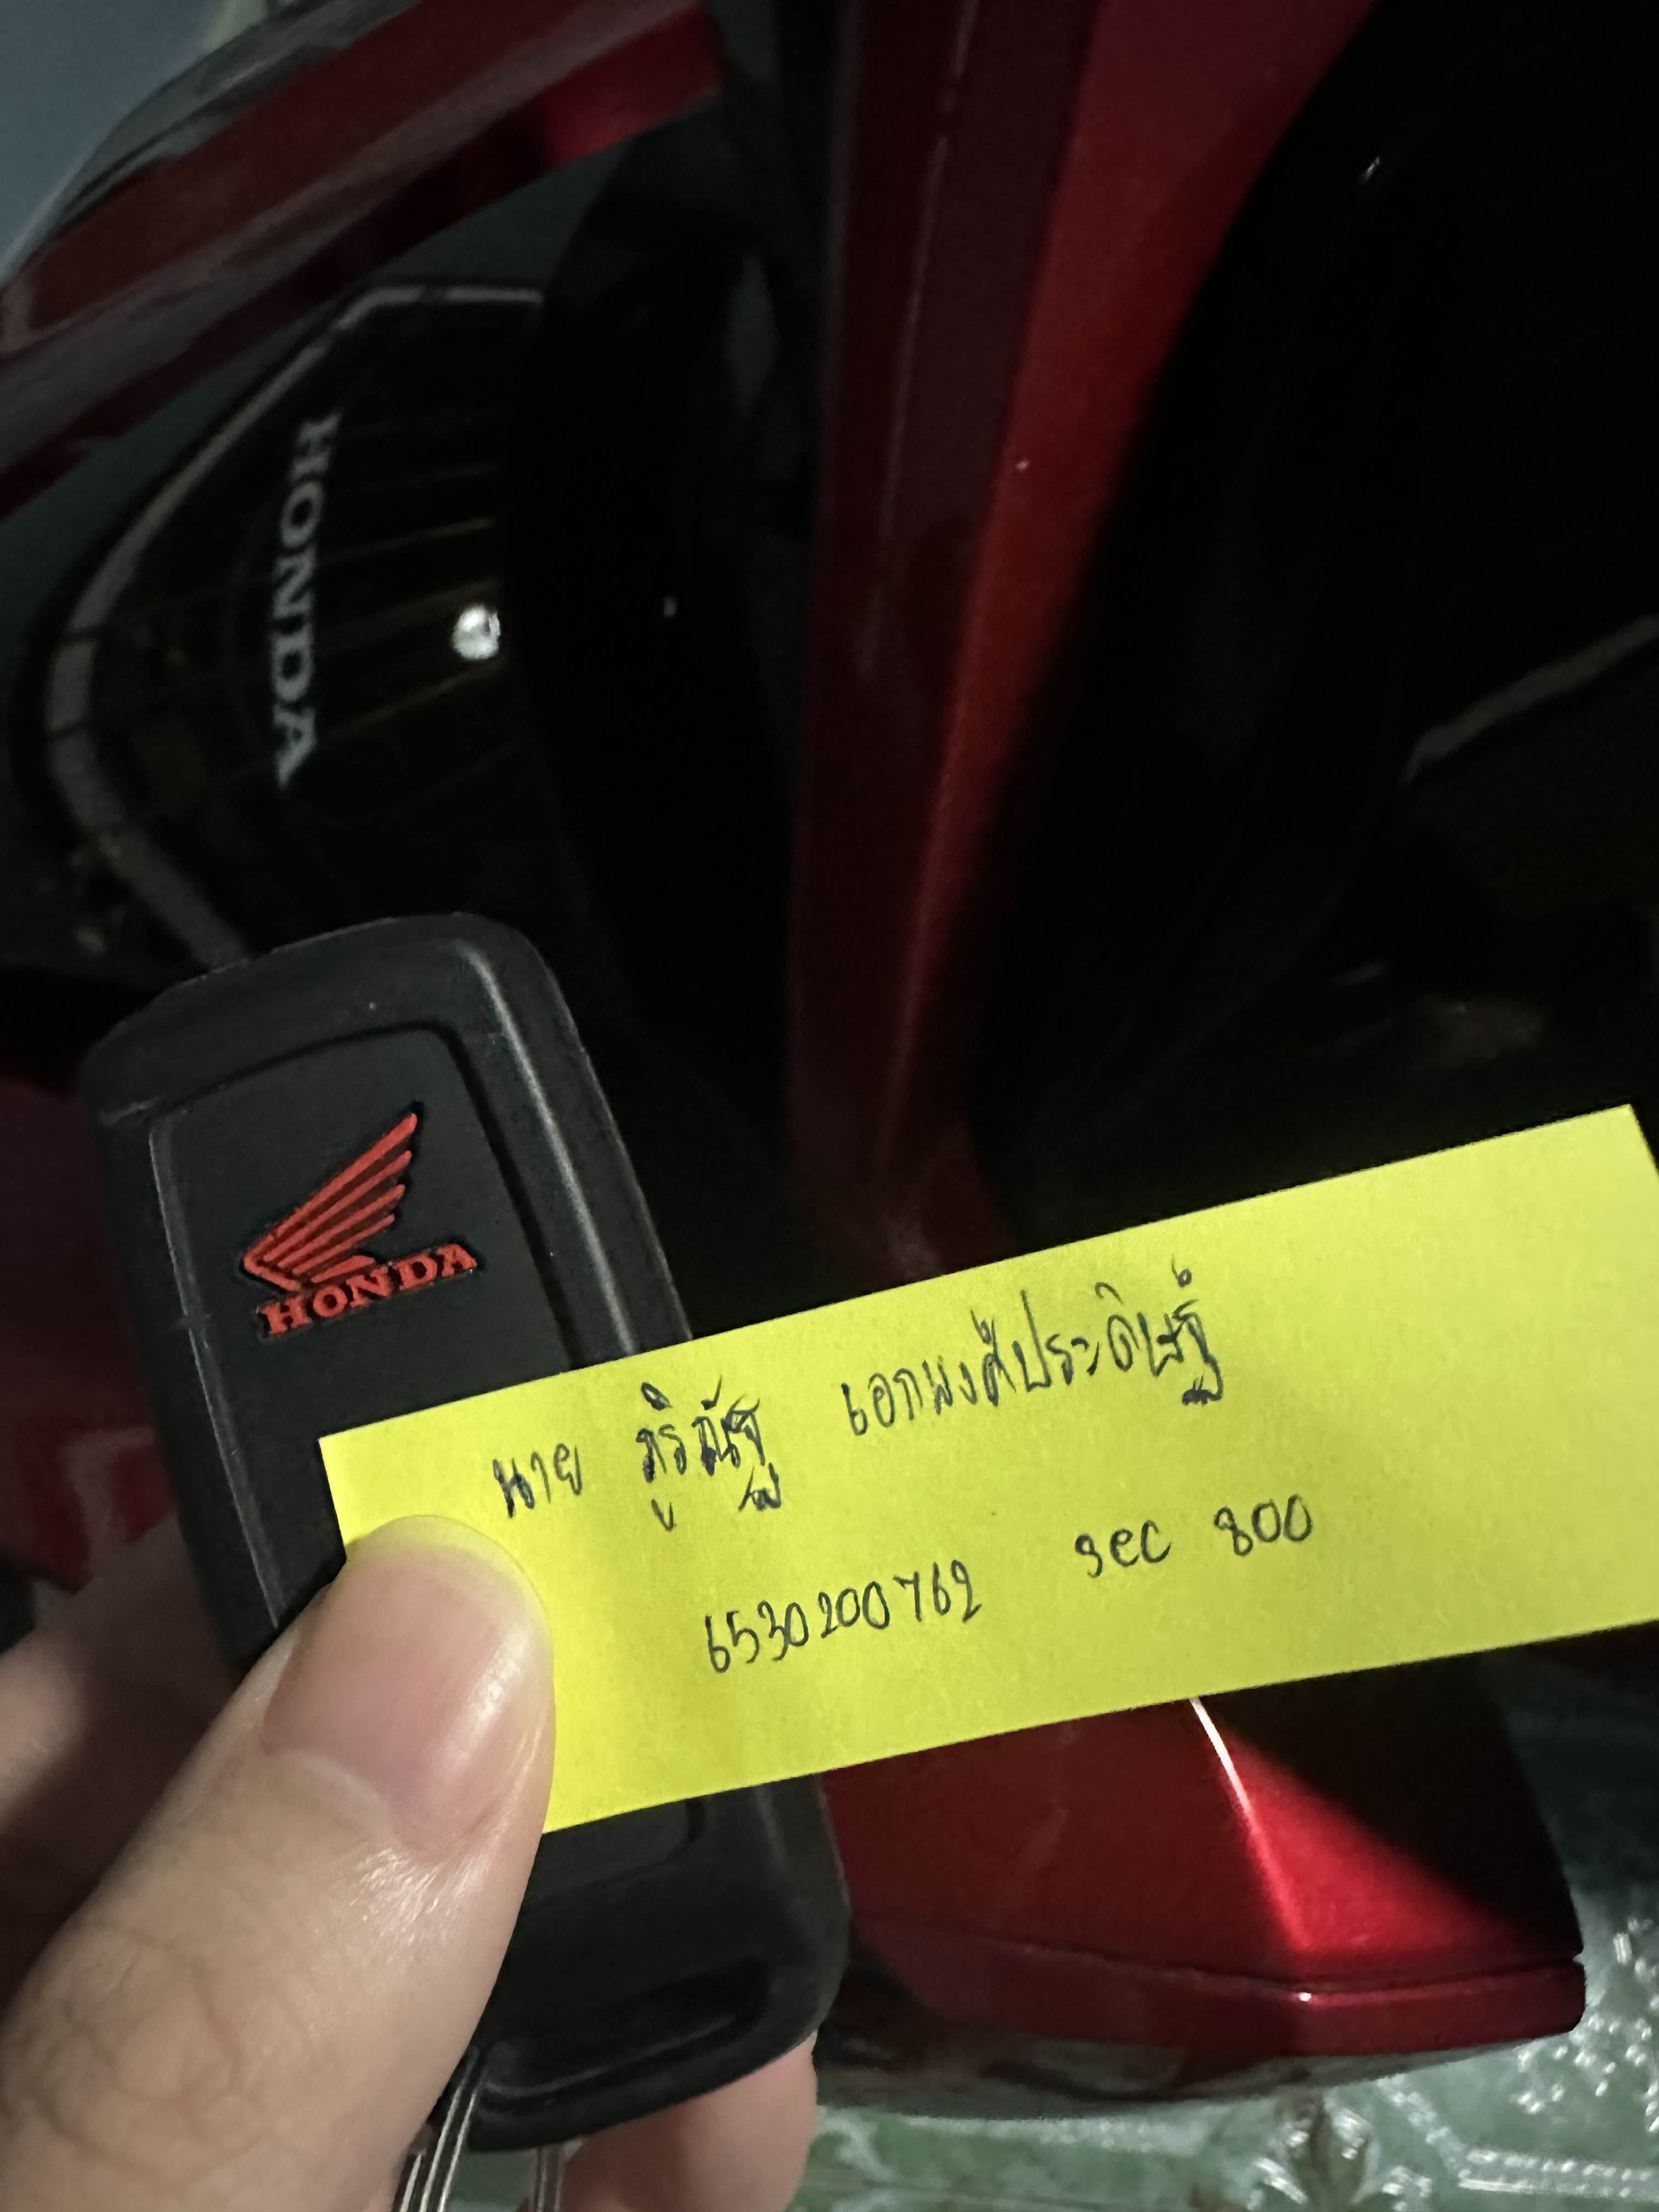 HONDA
HONDA
นาย ภูริณัฐ เอกพงศ์ประดิษฐ์
6530200762 sec 800